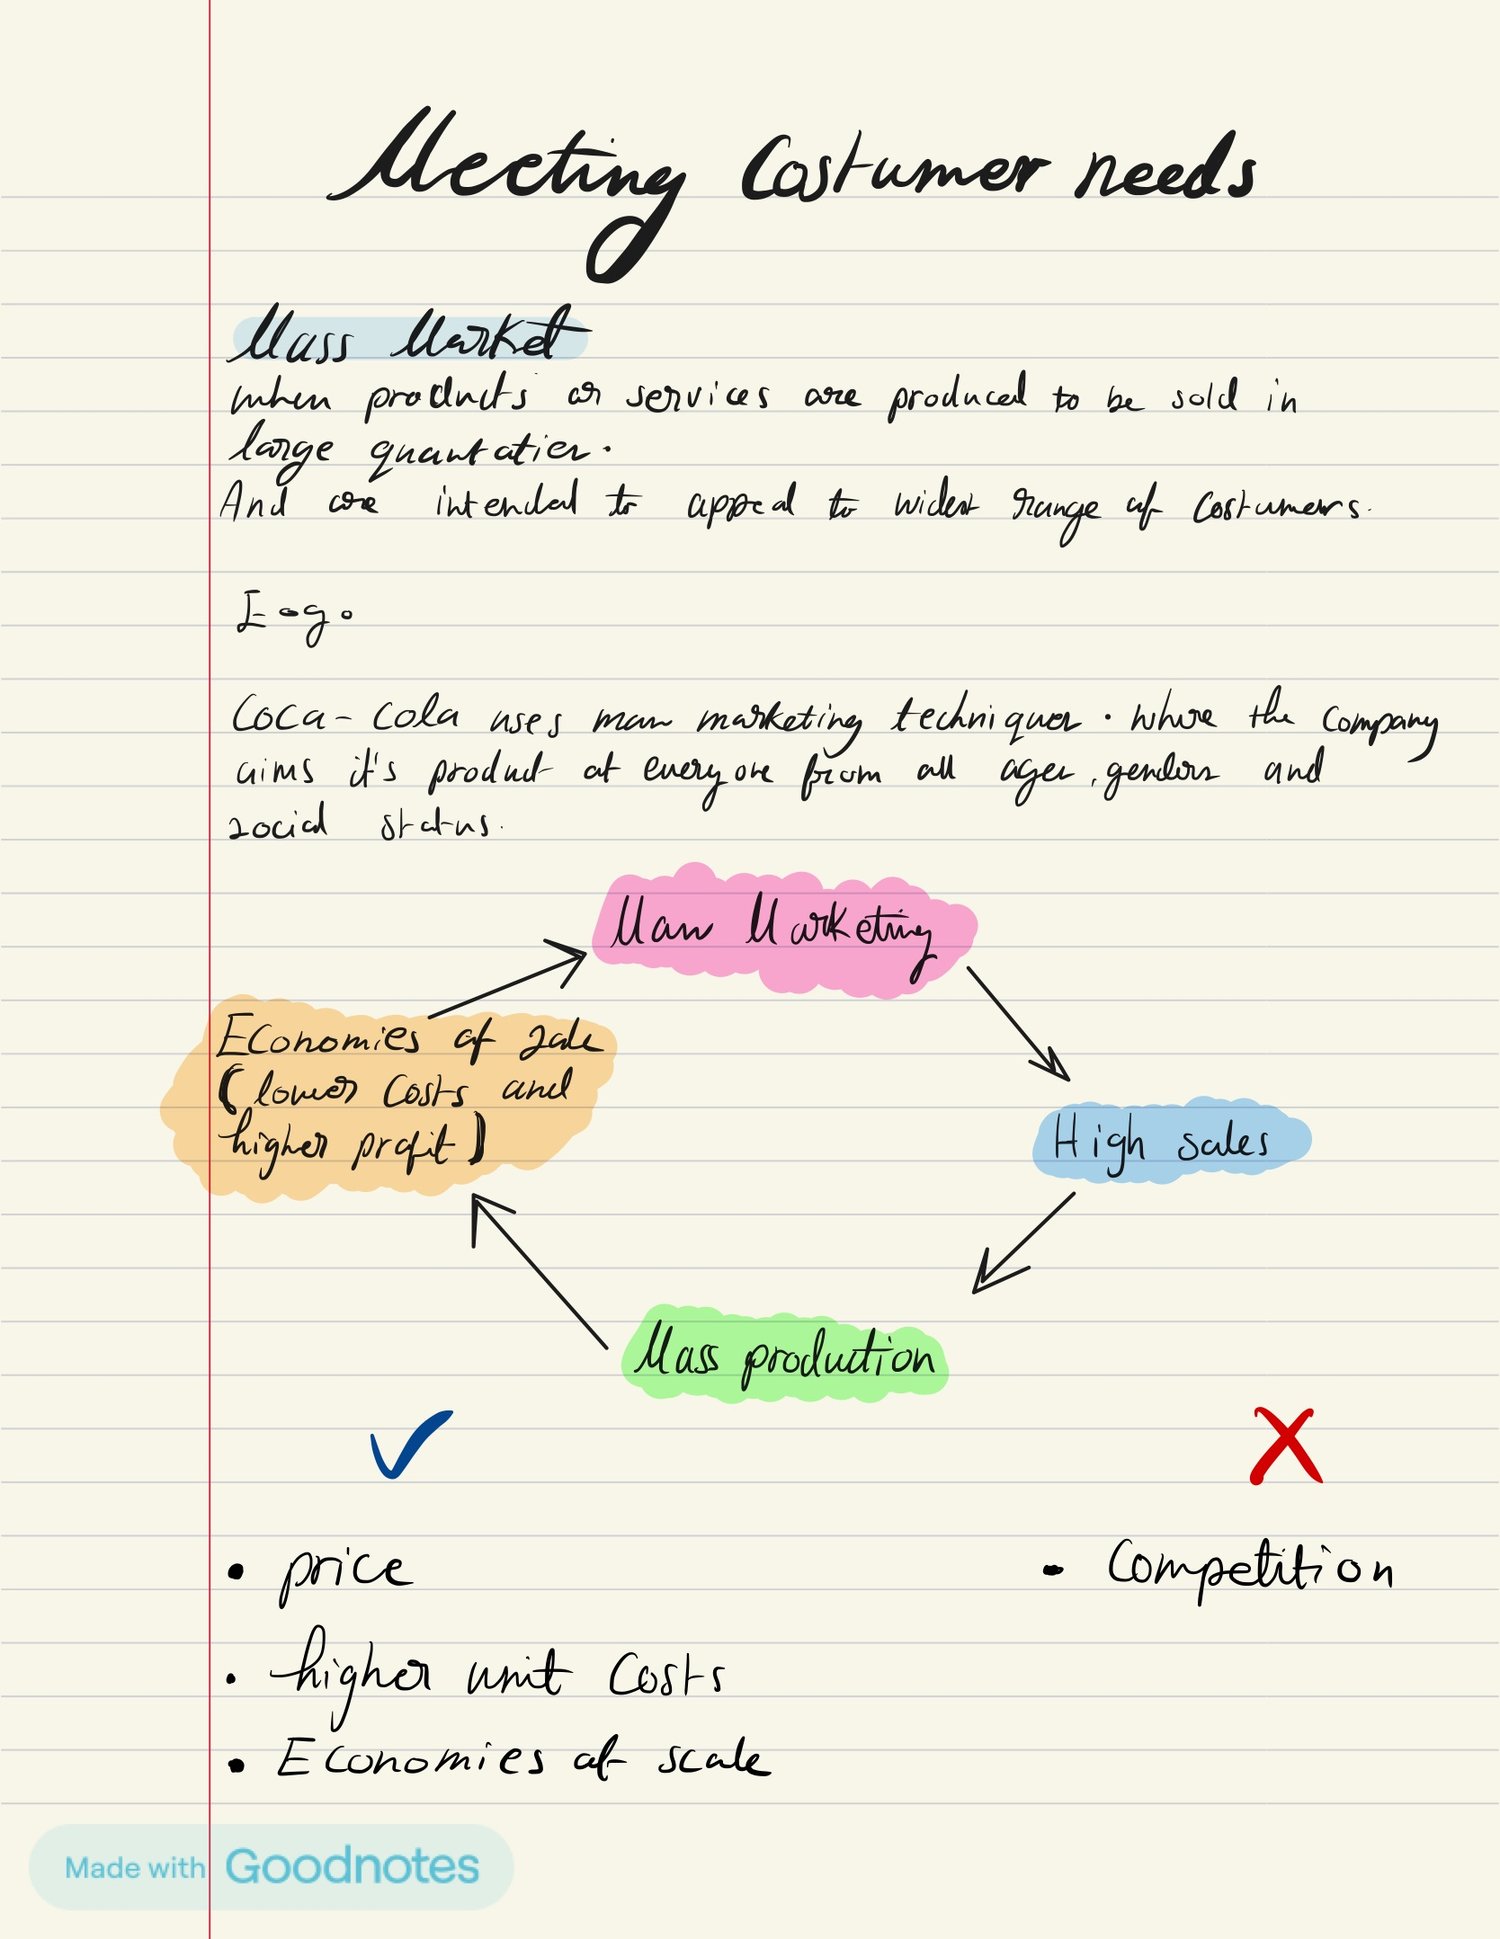 Meeting Costumer needs
Mass Market
when products or services are produced to be sold in
large quantaties.
And are intended to appeal to widest range of costumers.
E.g.
Coca-Cola uses mass marketing techniques. where the company
aims it's product at everyone from all ages, genders and
social status.
Mass Marketing
Economies of sale
(lower costs and
higher profit)
High sales
Mass production
• price
• Competition
• higher unit costs
• Economies of scale
Made with Goodnotes